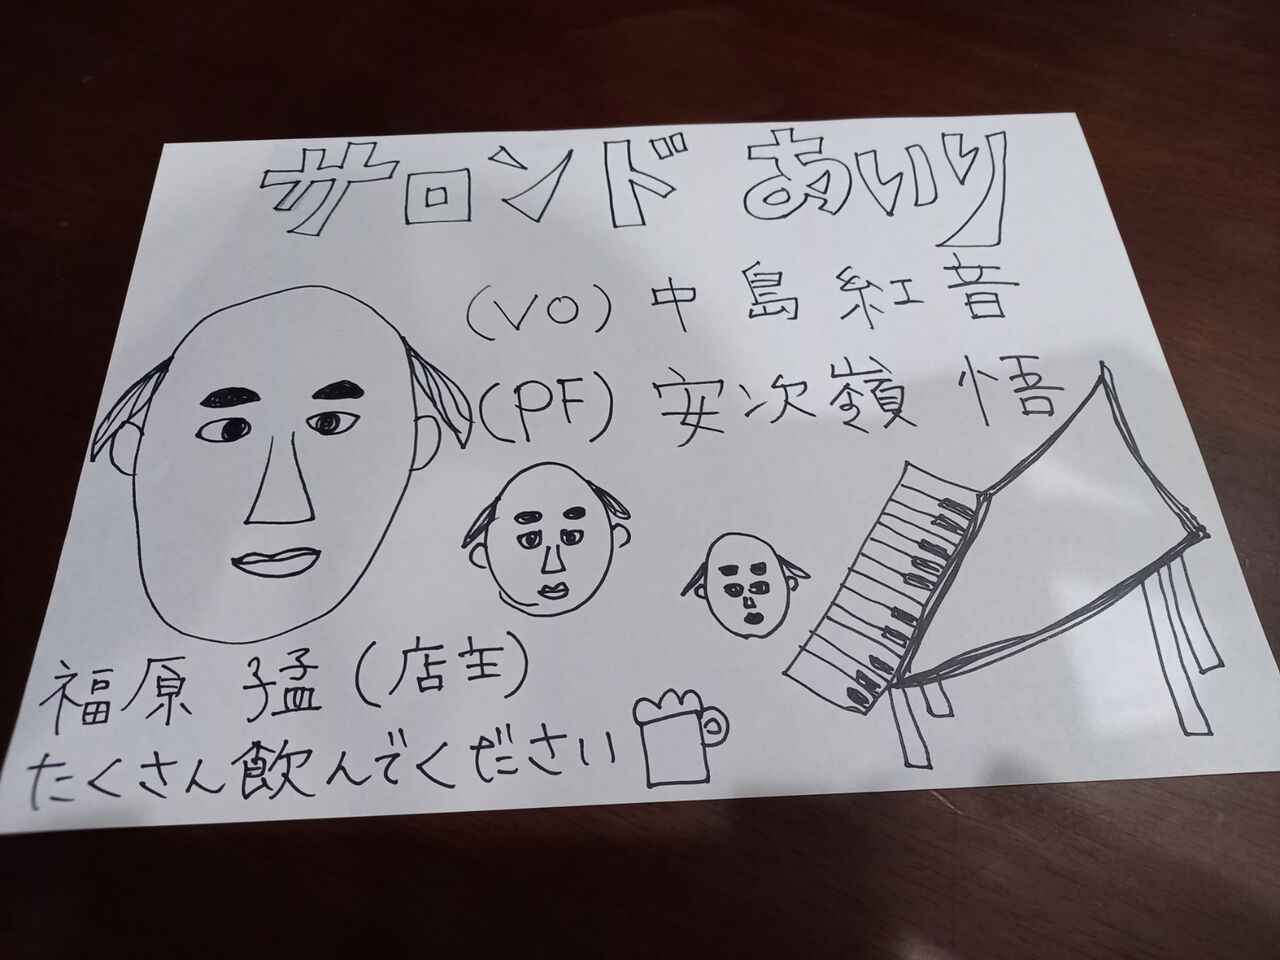 サロンド あいり
(VO) 中島 紅音
(PF) 安次嶺 悟
福原 猛(店主)
たくさん飲んでください